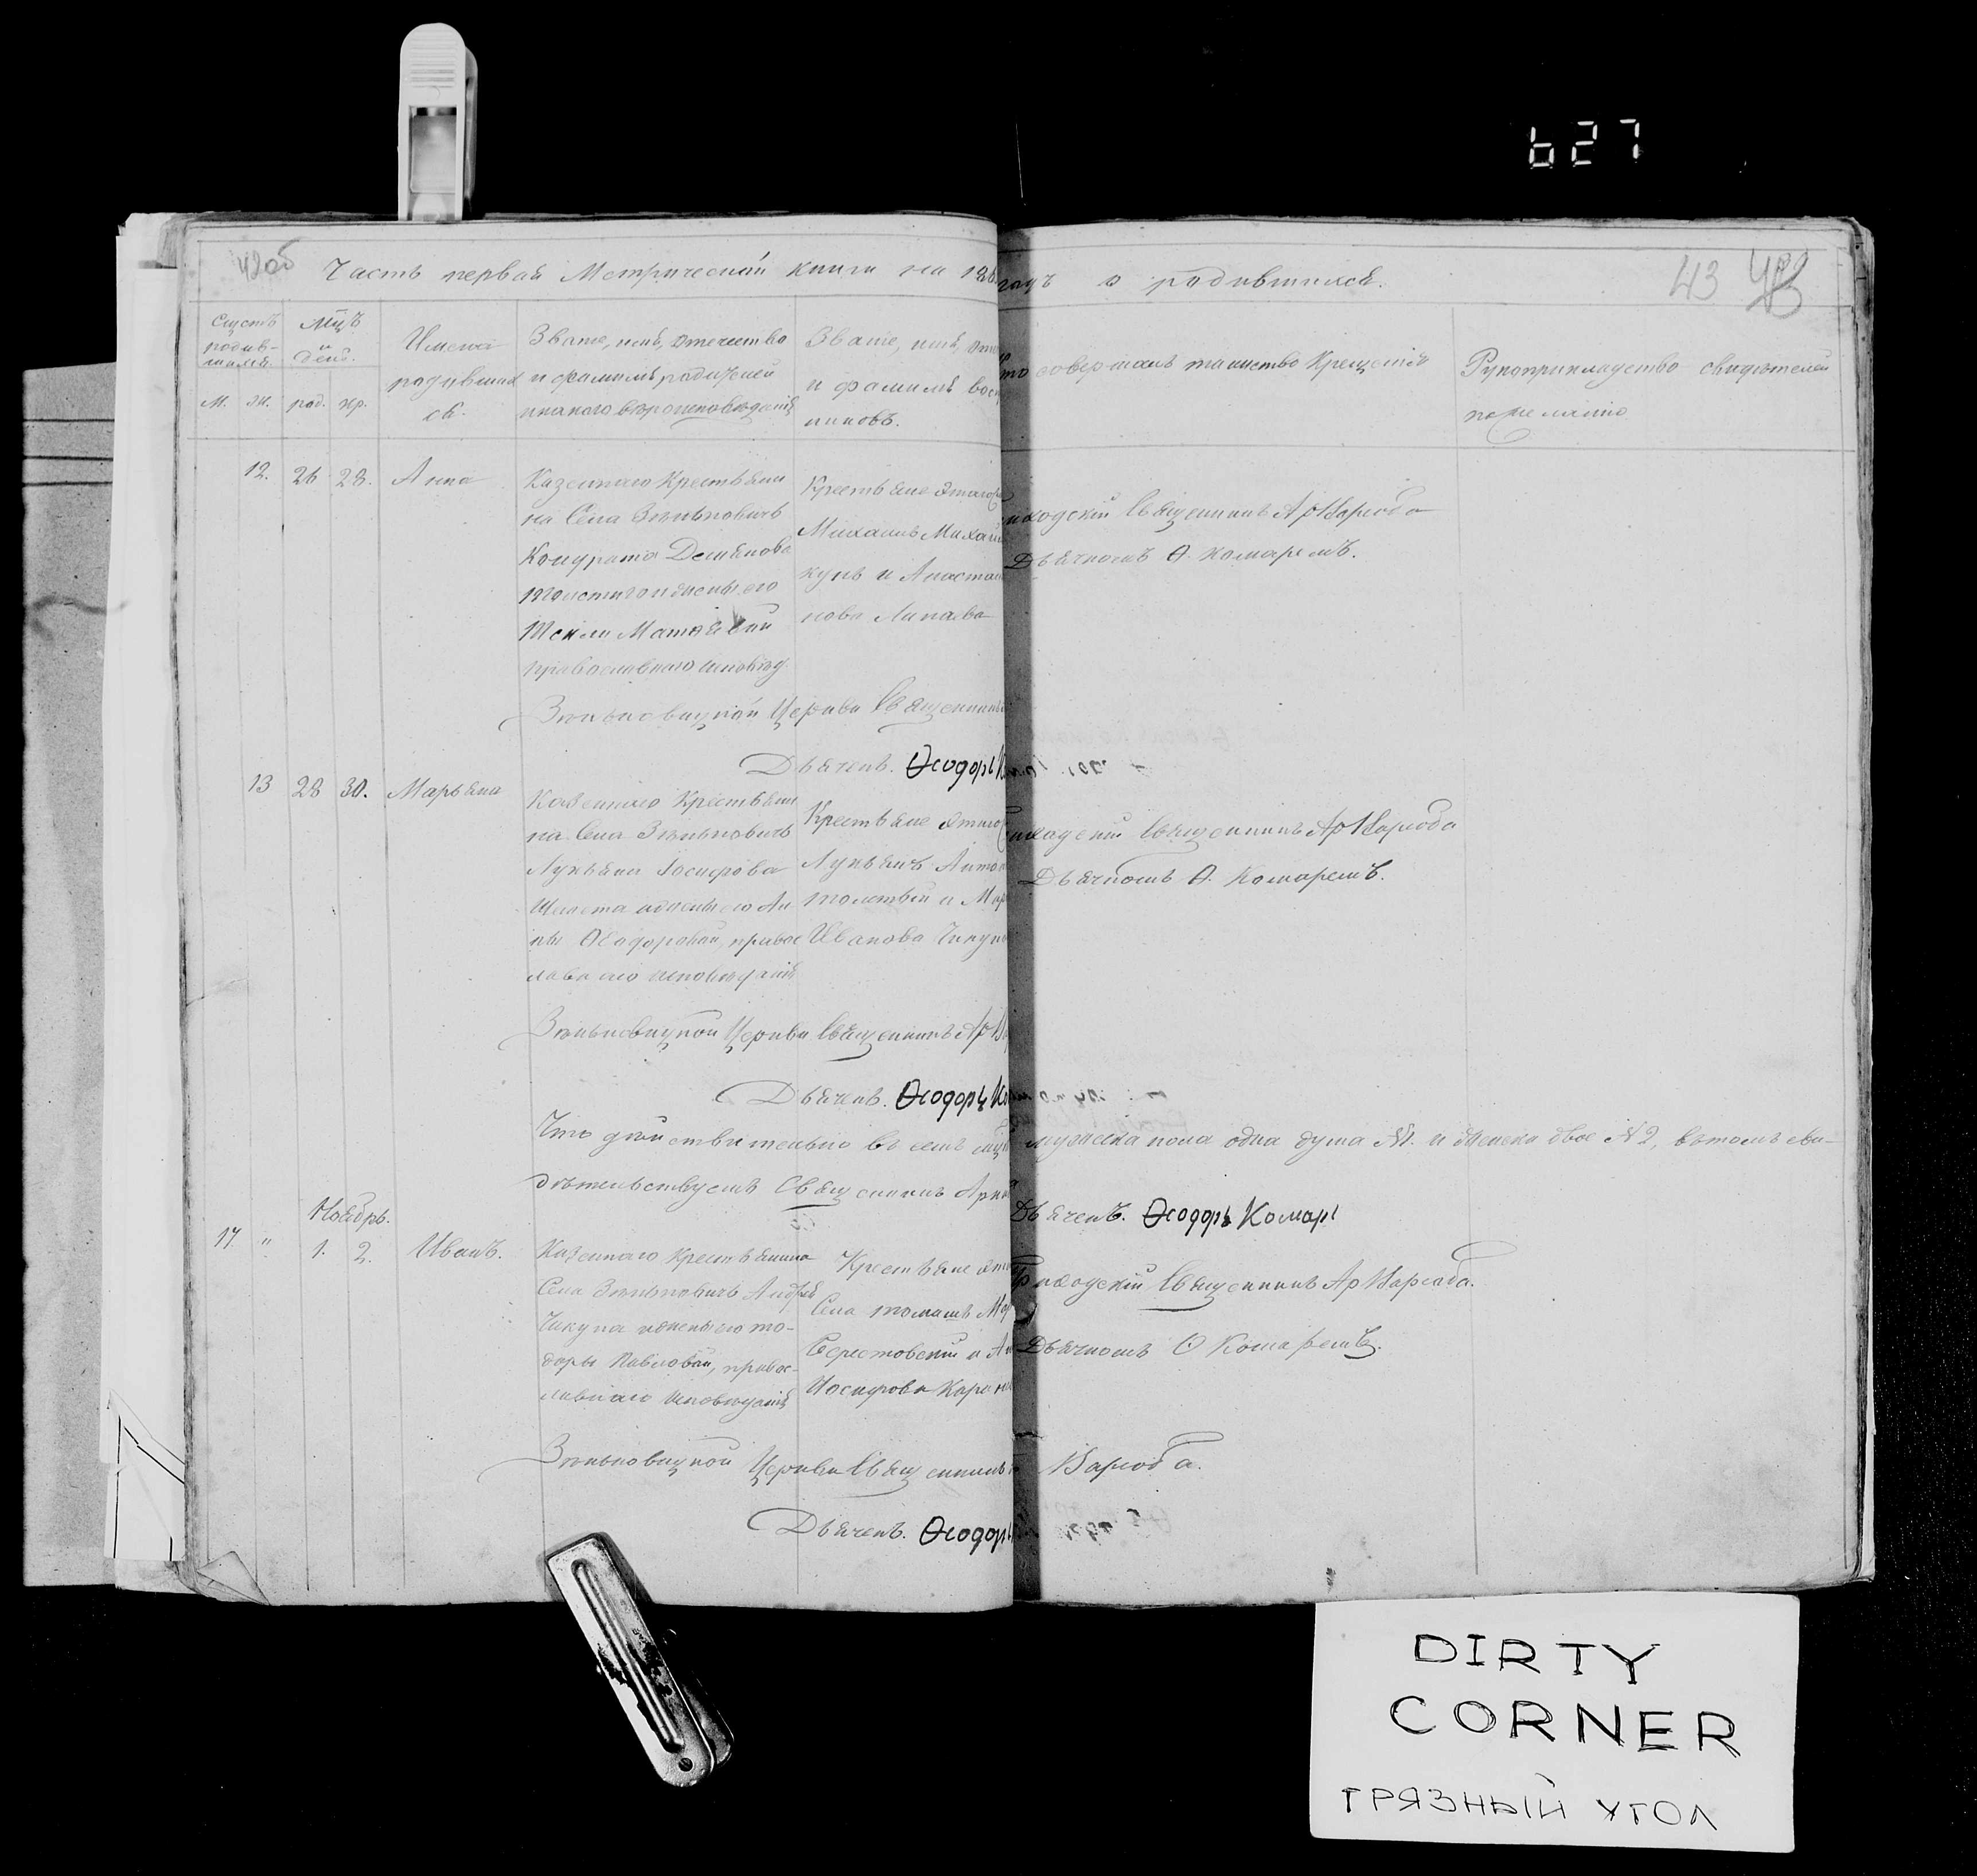 627
42об
Часть первая Метрической книги на 186
годъ о родившихся.
43
Счетъ родив-шихся.
М. Ж.
Мцъ и день.
род. кр.
Имена родившихся.
Званіе, имя, отечество
и фамилія родителей
и какого вѣроисповѣданія
Званіе, имя, отече
и фамилія восп
никовъ.
то совершалъ таинство Крещенія
Рукоприкладство свидѣтелей
по желанію
12. 26 28. Анна
Казеннаго Крестьяни
на Села Зѣньковичъ
Кондрата Демьянова
и жены его
Теклі Матѳѣевой
православнаго исповѣд
Крестьяне этого
Михаилъ Михай
кунъ и Анастас
нова
иходскій Священникъ Ар Варгоба
Дьячкомъ Ѳ. Комаремъ.
Зѣньковицкой Церкви Священникъ
Дьячекъ. Ѳеодоръ К
13 28 30. Марьяна
Казеннаго Крестьяни
на Села Зѣньковичъ
Лукьяна Іосифова
Шелета и жены его Ан
ны Ѳеодоровой, правос
лавнаго исповѣданія
Крестьяне этого
Лукьянъ Антон
и Мар
Иванова Чикун
иходскій Священникъ Ар Варгоба
Дьячкомъ Ѳ. Комаремъ.
Зѣньковицкой Церкви Священникъ Ар В
Дьячекъ. Ѳеодоръ Ко
Что дѣйствительно въ семъ мужеска пола одна душа №1. и женска двое №2, въ томъ сви-
дѣтельствуемъ Священникъ Арк
Дьячекъ. Ѳеодоръ Комаръ
Ноябрь.
17. " 1. 2. Иванъ.
Казеннаго Крестьянина
Села Зѣньковичъ Андрея
Чикуна и жены его То-
доры Павловой, правос-
лавнаго исповѣданія
Крестьяне это
Села Томашъ
Берестовскій и Ан
Иосифова
иходскій Священникъ Ар Варгоба.
Дьячкомъ Ѳ Комаремъ.
Зѣньковицкой Церкви Священникъ Варгоба.
Дьячекъ. Ѳеодоръ
DIRTY
CORNER
ГРЯЗНЫЙ УГОЛ